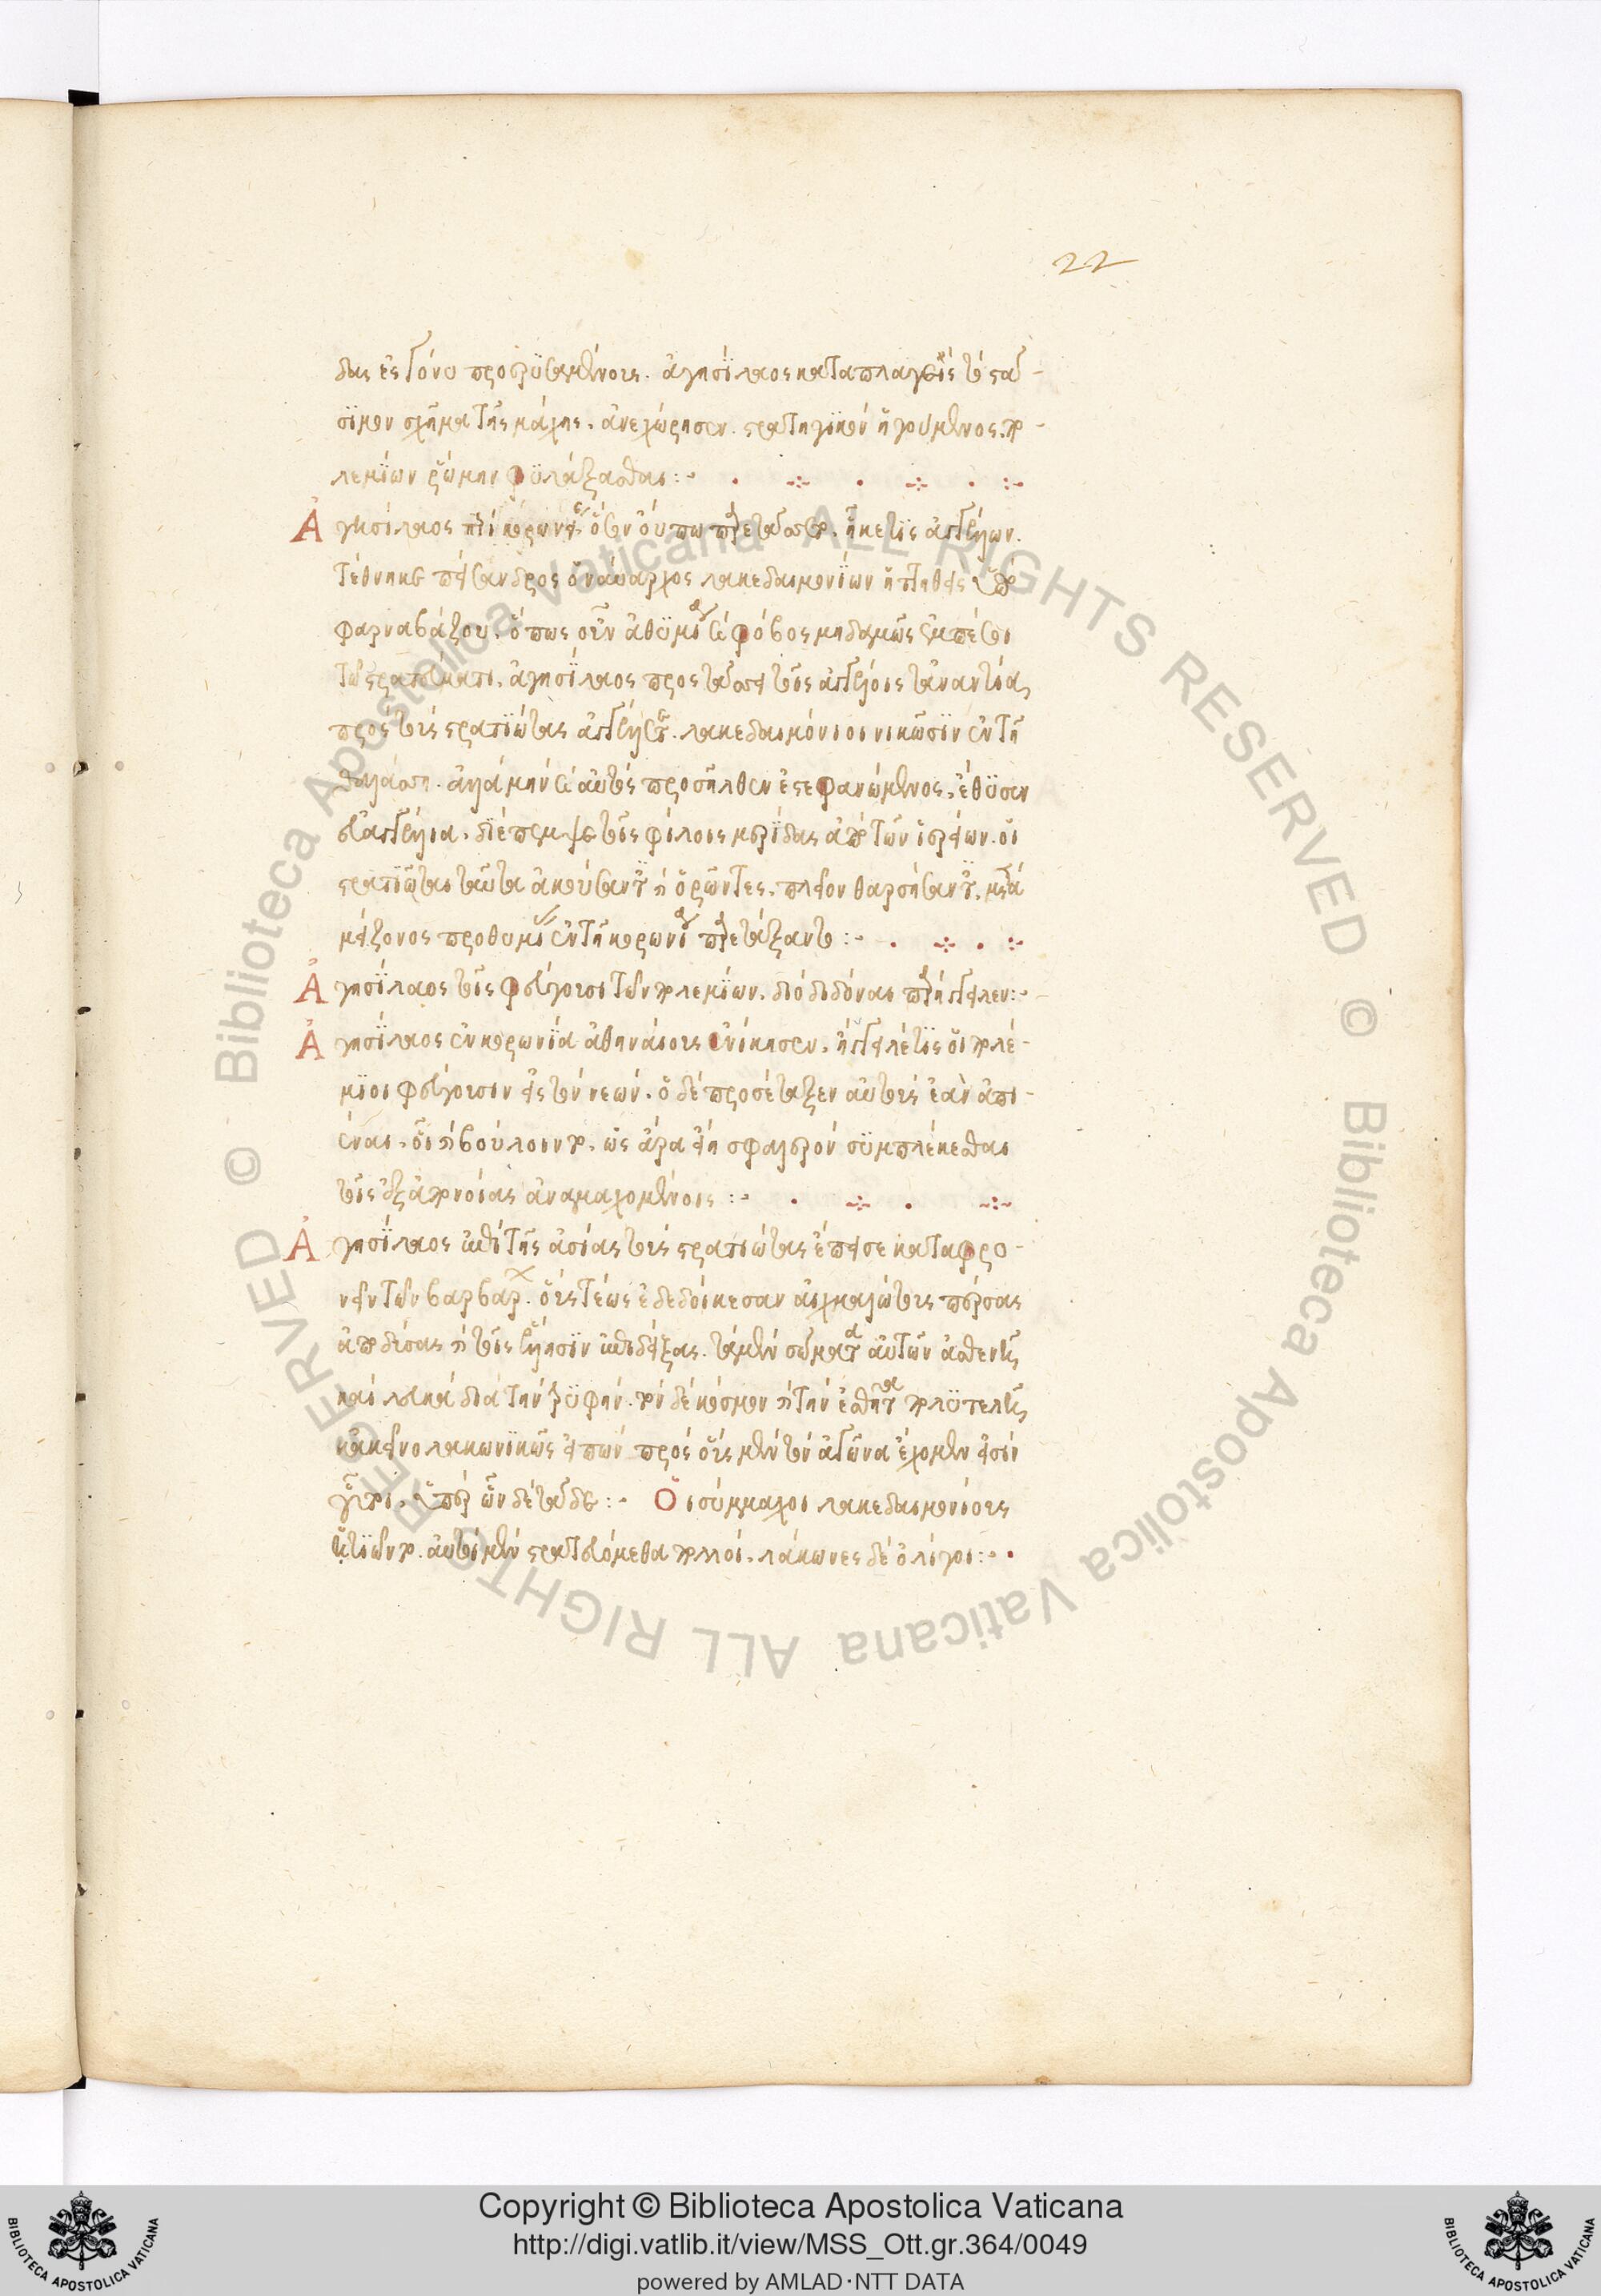 22
δας ἐς γόνυ προβεβλημένους. ἀγησίλαος καταπλαγεὶς τὸ στά-
σιμον σχῆμα τῆς μάχης, ἀνεχώρησεν. στρατηγικὸν ἡγούμενος, πο-
λεμίων ῥώμην φυλάξασθαι:-
Ἀγησίλαος περὶ κορώνειαν ὅσον οὔπω παρετάσσετο. ἧκέ τις ἀγγέλλων.
τέθνηκε πείσανδρος ὁ ναύαρχος λακεδαιμονίων ἡττηθεὶς ὑπὸ
φαρναβάζου. ὅπως οὖν ἀθυμία καὶ φόβος μηδαμῶς ἐμπέσοι
τῷ στρατεύματι, ἀγησίλαος προστάττει τοῖς ἀγγέλοις τἀναντία
πρὸς τοὺς στρατιώτας ἀγγέλλειν. λακεδαιμόνιοι νικῶσιν ἐν τῇ
θαλάσσῃ. ἀλλὰ μὴν καὶ αὐτὸς προσῆλθεν ἐστεφανωμένος, ἔθυσεν
εὐαγγέλια, διέπεμψε τοῖς φίλοις μερίδας ἀπὸ τῶν ἱερείων. οἱ
στρατιῶται ταῦτα ἀκούσαντες καὶ ὁρῶντες, πλέον θαρσήσαντες, μετὰ
μείζονος προθυμίας ἐν τῇ κορωνείᾳ παρετάξαντο:-
Ἀγησίλαος τοῖς φεύγουσι τῶν πολεμίων, διόδι διδόναι παρήγγελλεν:-
Ἀγησίλαος ἐν κορωνίᾳ ἀθηναίους ἐνίκησεν. ἤγγειλέ τις οἱ πολέ-
μιοι φεύγουσιν εἰς τὸν νεών. ὁ δὲ προσέταξεν αὐτοὺς ἐᾶν ἀπι-
έναι, οἷ καὶ βούλοιντο, ὡς ἄρα εἴη σφαλερὸν συμπλέκεσθαι
τοῖς ἐξ ἀπονοίας ἀναμαχομένοις:-
Ἀγησίλαος ἐπὶ τῆς ἀσίας τοὺς στρατιώτας ἔπεισε καταφρο-
νεῖν τῶν βαρβάρων. οὓς τέως ἐδεδοίκεσαν αἰχμαλώτους πέρσας
ἀποδύσας καὶ τοῖς Ἕλλησιν ἐπιδείξας. τὰ μὲν σώματα αὐτῶν ἀσθενῆ
καὶ λευκὰ διὰ τὴν τρυφήν. τὸν δὲ κόσμον καὶ τὴν ἐσθῆτα πολυτελῆ
κἀκεῖνο λακωνικῶς εἰπὼν πρὸς οὓς μὲν τὸν ἀγῶνα ἔχομεν εἰσὶν
οὗτοι. ὑπὲρ ὧν δὲ ταῦδε:- Οἱ σύμμαχοι λακεδαιμονίους
ᾐτιῶντο. αὐτοὶ μὲν στρατευόμεθα πολλοί. λάκωνες δὲ ὀλίγοι:-
Copyright © Biblioteca Apostolica Vaticana
http://digi.vatlib.it/view/MSS_Ott.gr.364/0049
powered by AMLAD·NTT DATA